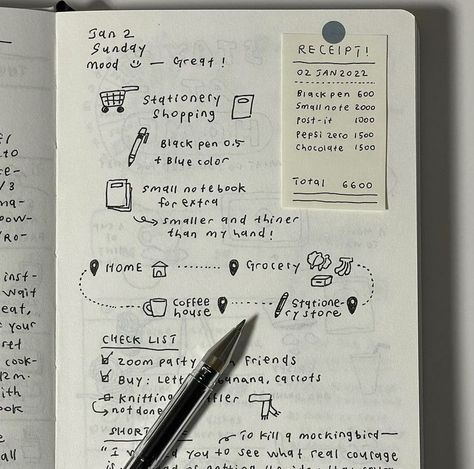 Jan 2
Sunday
mood — Great!
Stationery
Shopping
Black pen 0.5
+ Blue color
small notebook
for extra
smaller and thiner
than my hand!
HOME
Grocery
Coffee
house
Statione-
ry store
CHECK LIST
Zoom party friends
Buy: banana, carrots
Knitting
not done
"I you to see what real courage
To kill a mockingbird—
RECEIPT!
02 JAN 2022
Black pen 600
Small note 2000
Post-it 1000
Pepsi zero 1500
Chocolate 1500
Total 6600
TO
/3
inst-
wait
eat,
your
cook-
with